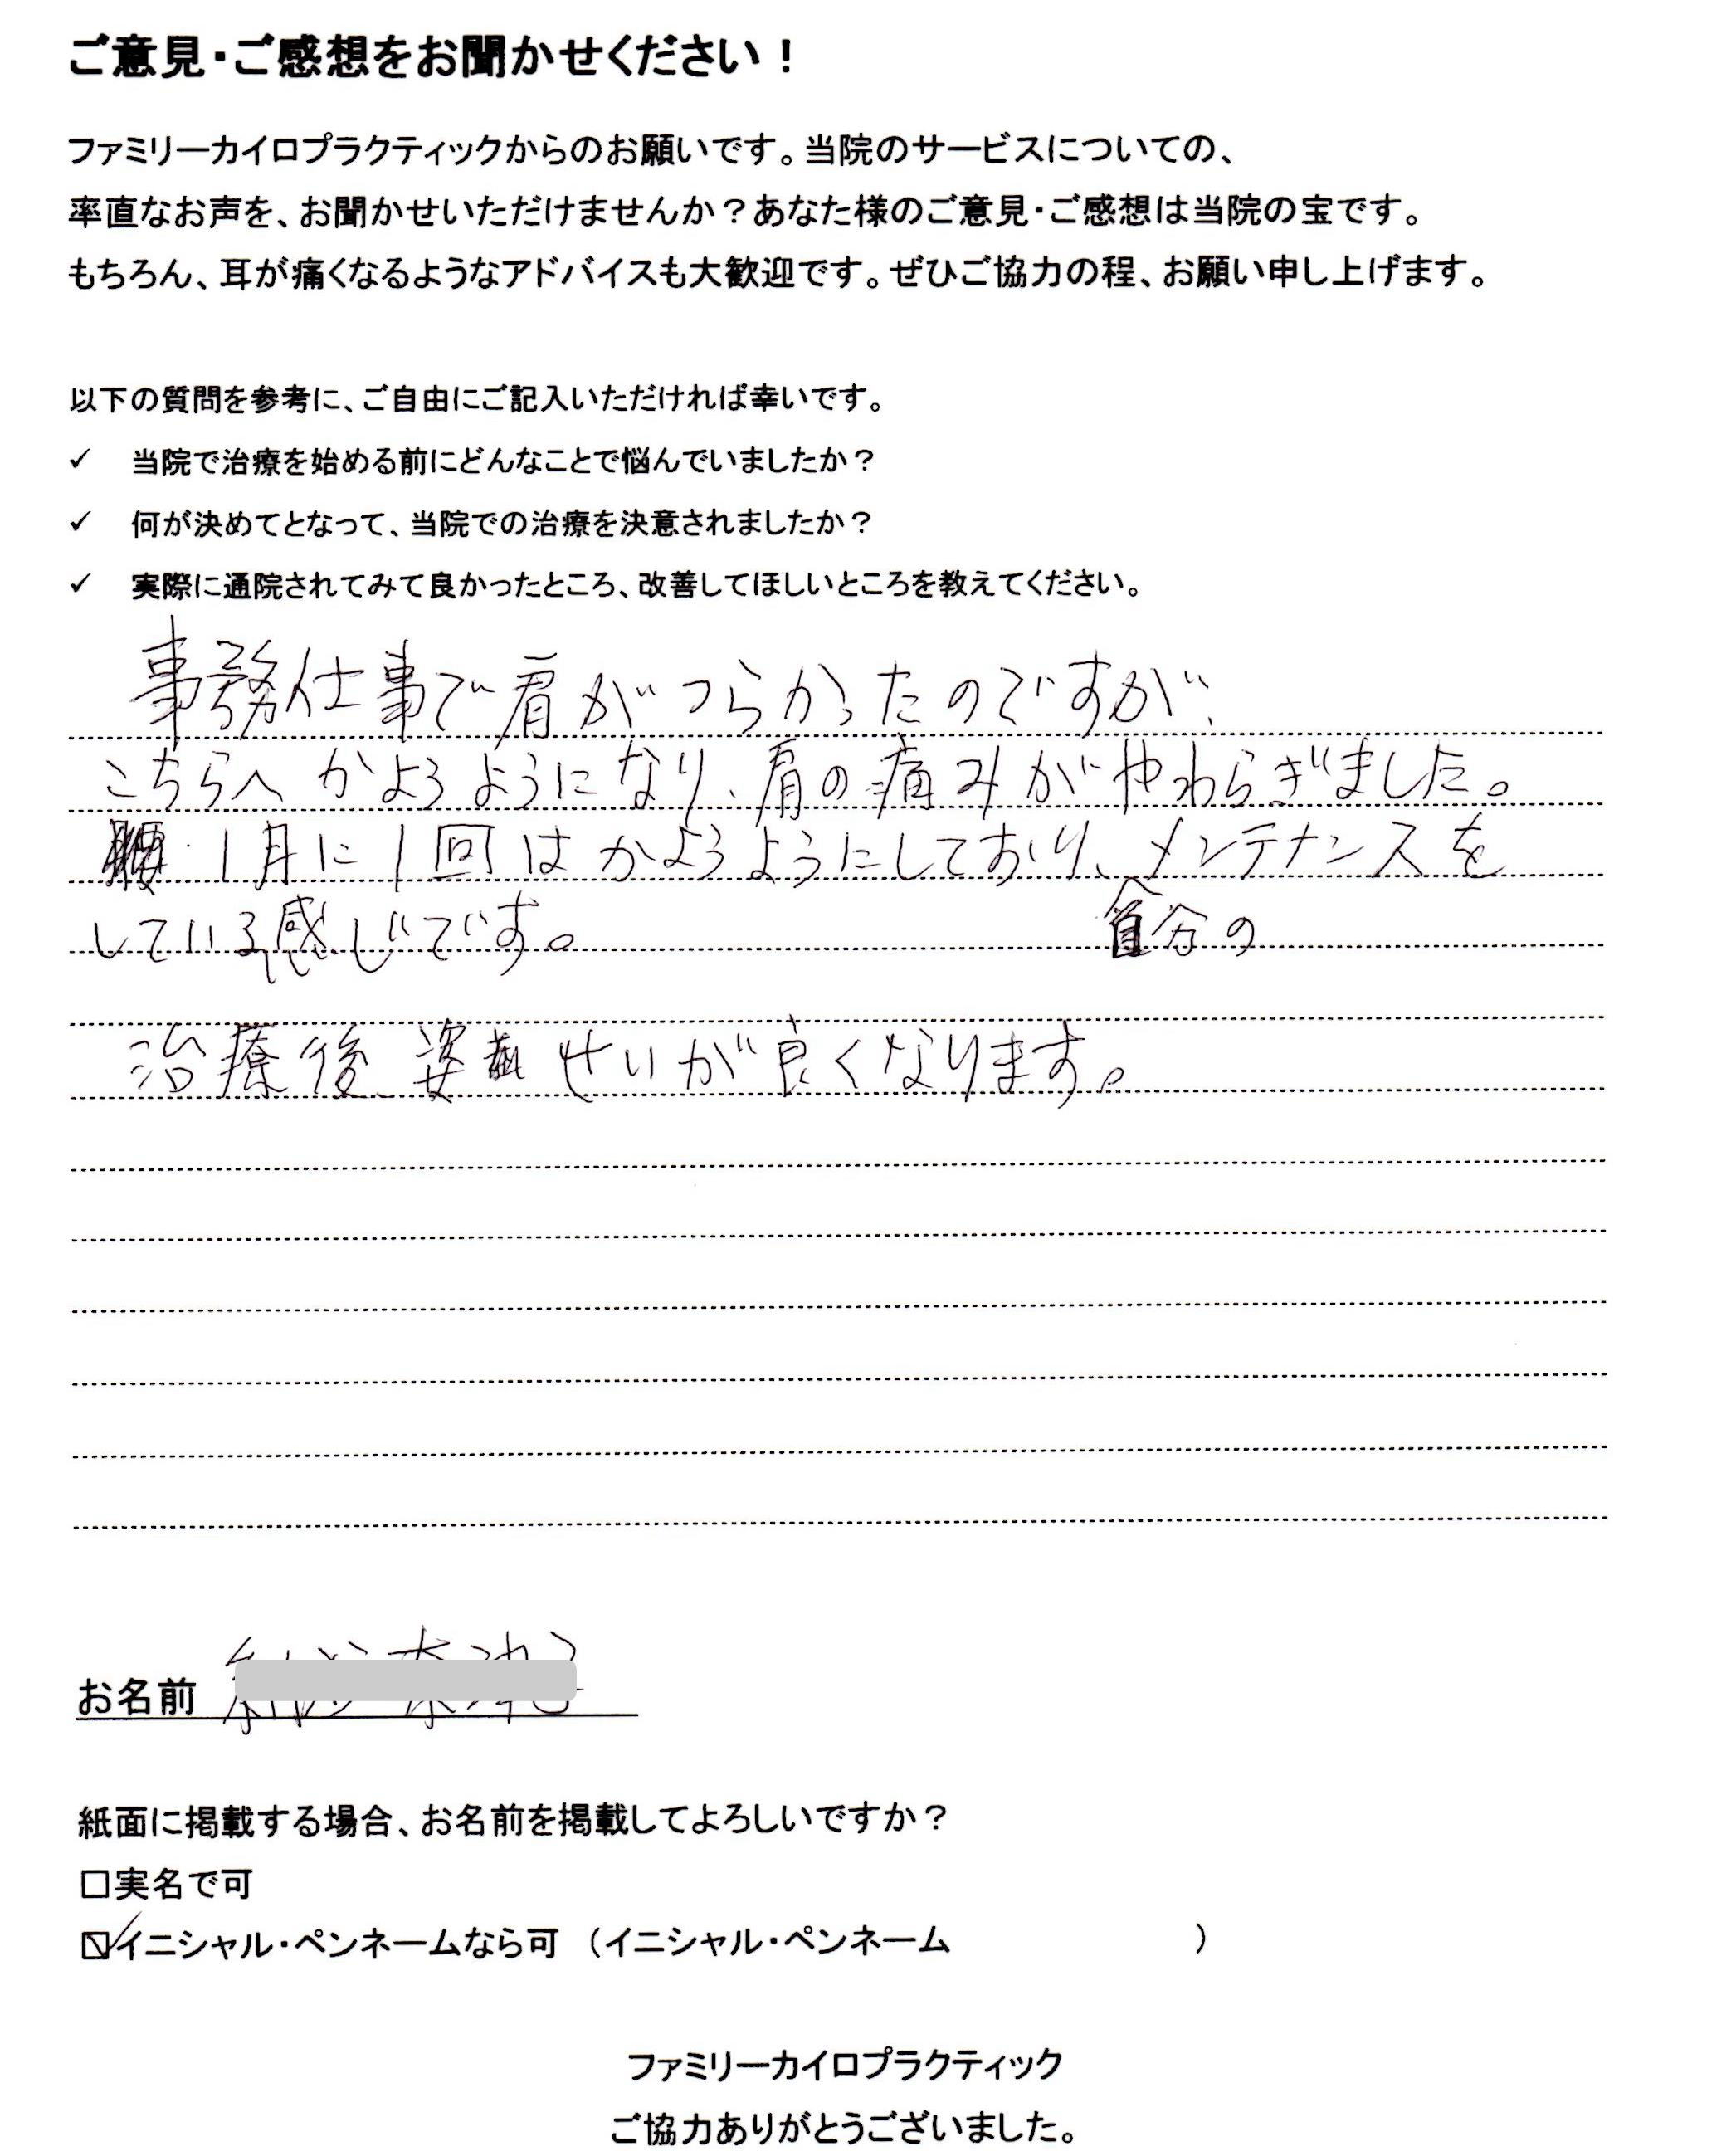 ご意見・ご感想をお聞かせください！
ファミリーカイロプラクティックからのお願いです。当院のサービスについての、
率直なお声を、お聞かせいただけませんか？あなた様のご意見・ご感想は当院の宝です。
もちろん、耳が痛くなるようなアドバイスも大歓迎です。ぜひご協力の程、お願い申し上げます。
以下の質問を参考に、ご自由にご記入いただければ幸いです。
✓ 当院で治療を始める前にどんなことで悩んでいましたか？
✓ 何が決めてとなって、当院での治療を決意されましたか？
✓ 実際に通院されてみて良かったところ、改善してほしいところを教えてください。
事務仕事で肩がつらかったのですが、
こちらへかようようになり、肩の痛みがやわらぎました。
1月に1回はかようようにしており、メンテナンスを
している感じです。
自分の
治療後、姿せいが良くなります。
お名前
紙面に掲載する場合、お名前を掲載してよろしいですか？
□実名で可
☑イニシャル・ペンネームなら可 （イニシャル・ペンネーム ）
ファミリーカイロプラクティック
ご協力ありがとうございました。